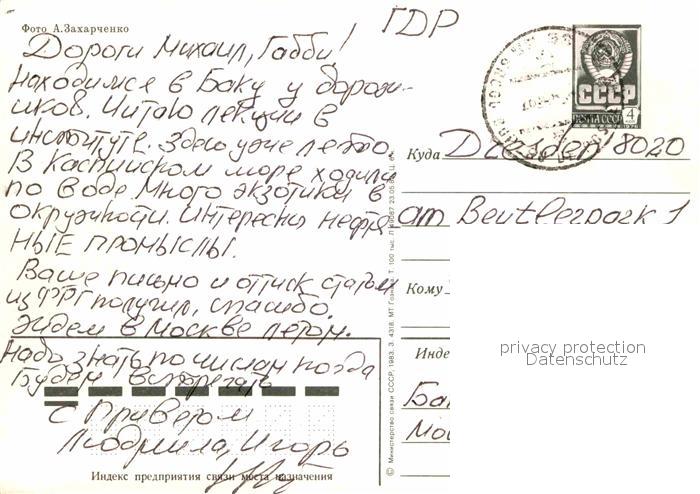 Фото А.Захарченко
ГДР
Дороги Михаил, Габби!
Находимся в Баку у
Читаю лекции в
институте. Здесь уже лето.
В Каспийском море ходили
по воде. Много экзотики в
окружности. Интересны нефтя-
НЫЕ ПРОМЫСЛЫ.
Ваше письмо и оттиск статьи
из ФРГ получил, спасибо.
Ждем в Москве летом.
Надо знать по числам когда
Будем встречать
С Приветом
Людмила, Игорь
Индекс предприятия связи места назначения
СССР
ПОЧТА СССР
4
Куда Dresden 8020
am Beutlerpark 1
Кому
Инде
privacy protection
Datenschutz
Ба
Мо
© Министерство связи СССР, 1983. З. 4318. МТ Гознака. Т. 100 тыс.